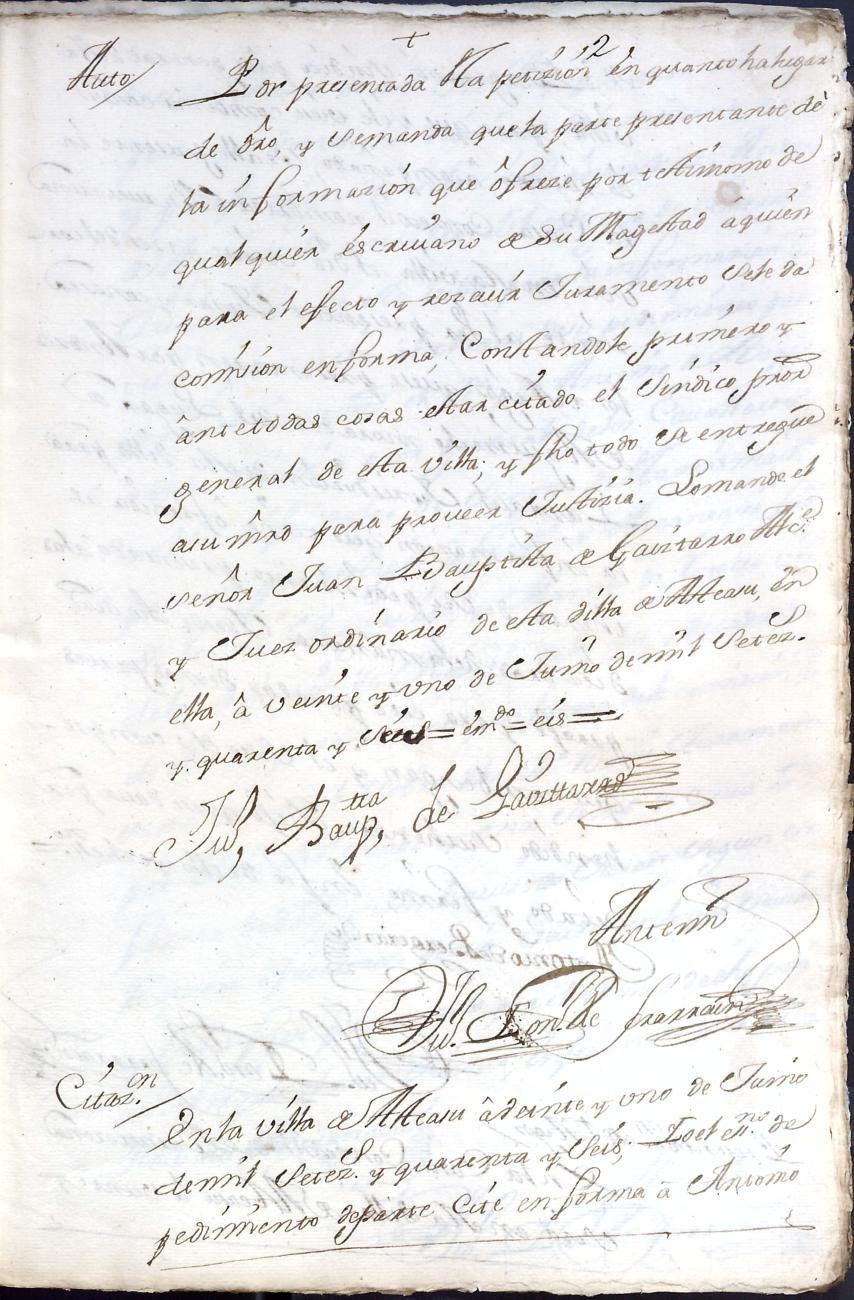 +
Auto/ Por presentada sta petizión en quanto ha lugar
de dro, y Semanda que la parte presentante dê
la informazión que ôfreze por testimonio de
qualquier éscriuano de Su Magestad a quién
para el efecto y rezauir Juramento se le da
comisión en forma, Constandole priméro y
ânte todas cosas estar citado el Síndico, pror
general de esta villa, y fho todo se entregue
asumrd para proveer Justizia. Lo mando el
señor Juan Bauptista de Gavittarro Alce
y Juez ordinario de esta villa de Atteasu, en
ella, â veinte y uno de Junio de mil Setez.
y quarenta y Seis = emdo = eis =
Ju, Bauptta, de Gavittarro
Antemi
Ju. de
Citazon/
En la villa de Atteasu â veinte y uno de Junio
de mil Setezs. y quarenta y Seis, Io el esno. de
pedimiento de parte Cité en forma â Antonio